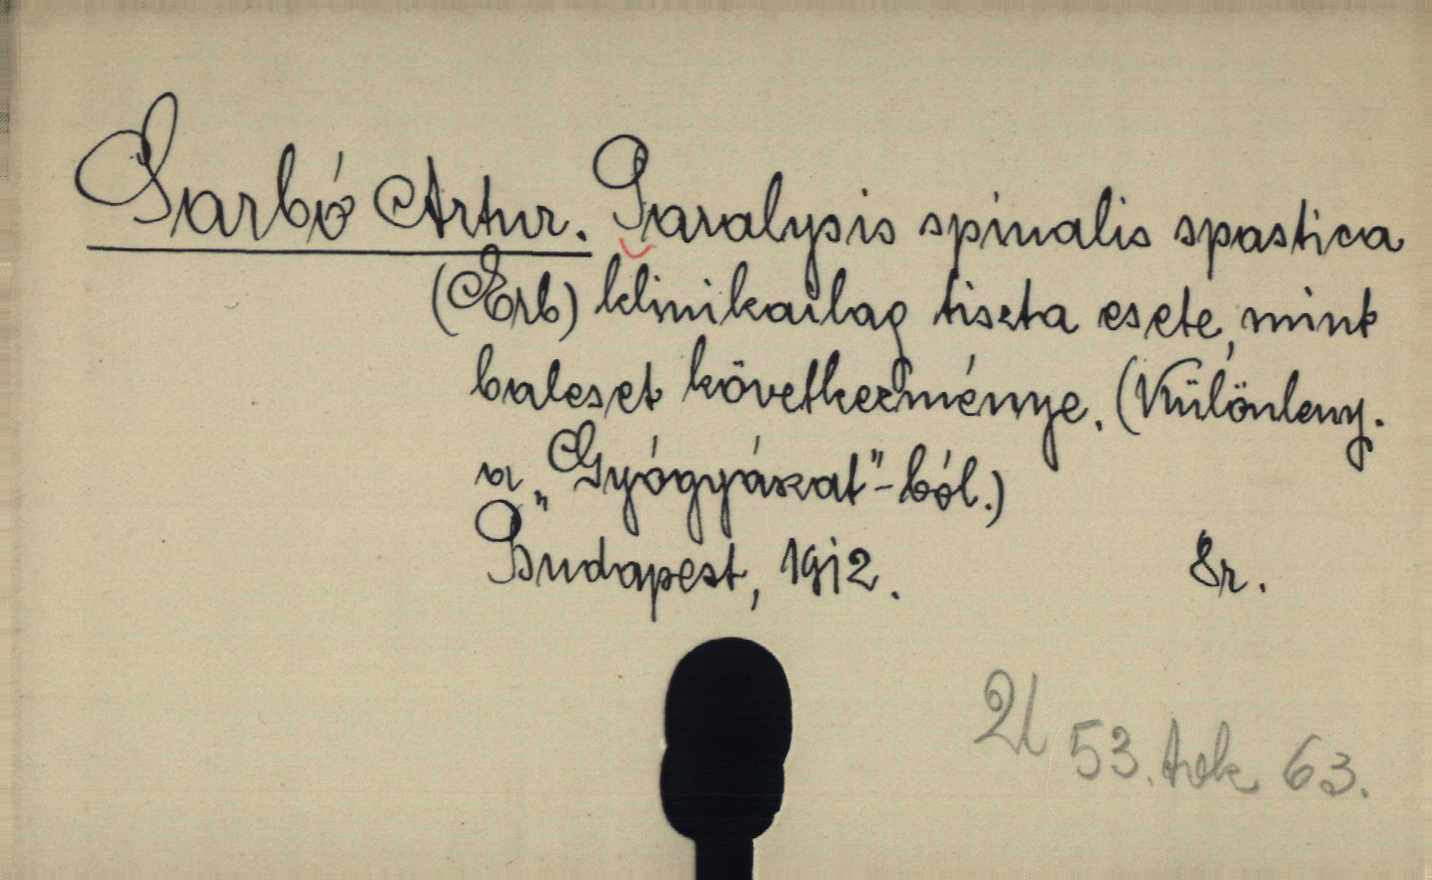 Sarbó Artur. Paralysis spinalis spastica
(Erb) klinikailag tiszta esete, mint
baleset következménye. (Különleny.
a „Gyógyászat"-ból.)
Budapest, 1912. 8r.
53. 63.